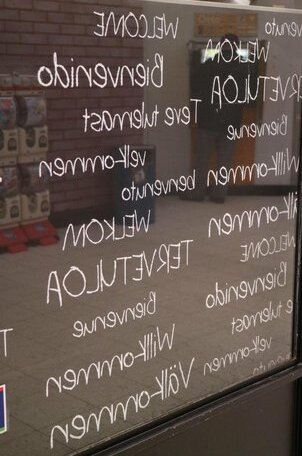 WELCOME
Bienvenido
Tere tulemast
velkommen
benvenuto
WELKOM
TERVETULOA
Bienvenue
Willkommen
Välkommen
venuto
WELKOM
ERVETULOA
Bienvenue
Willkommen
älkommen
WELCOME
Bienvenido
e tulemast
velkommen
benvenuto